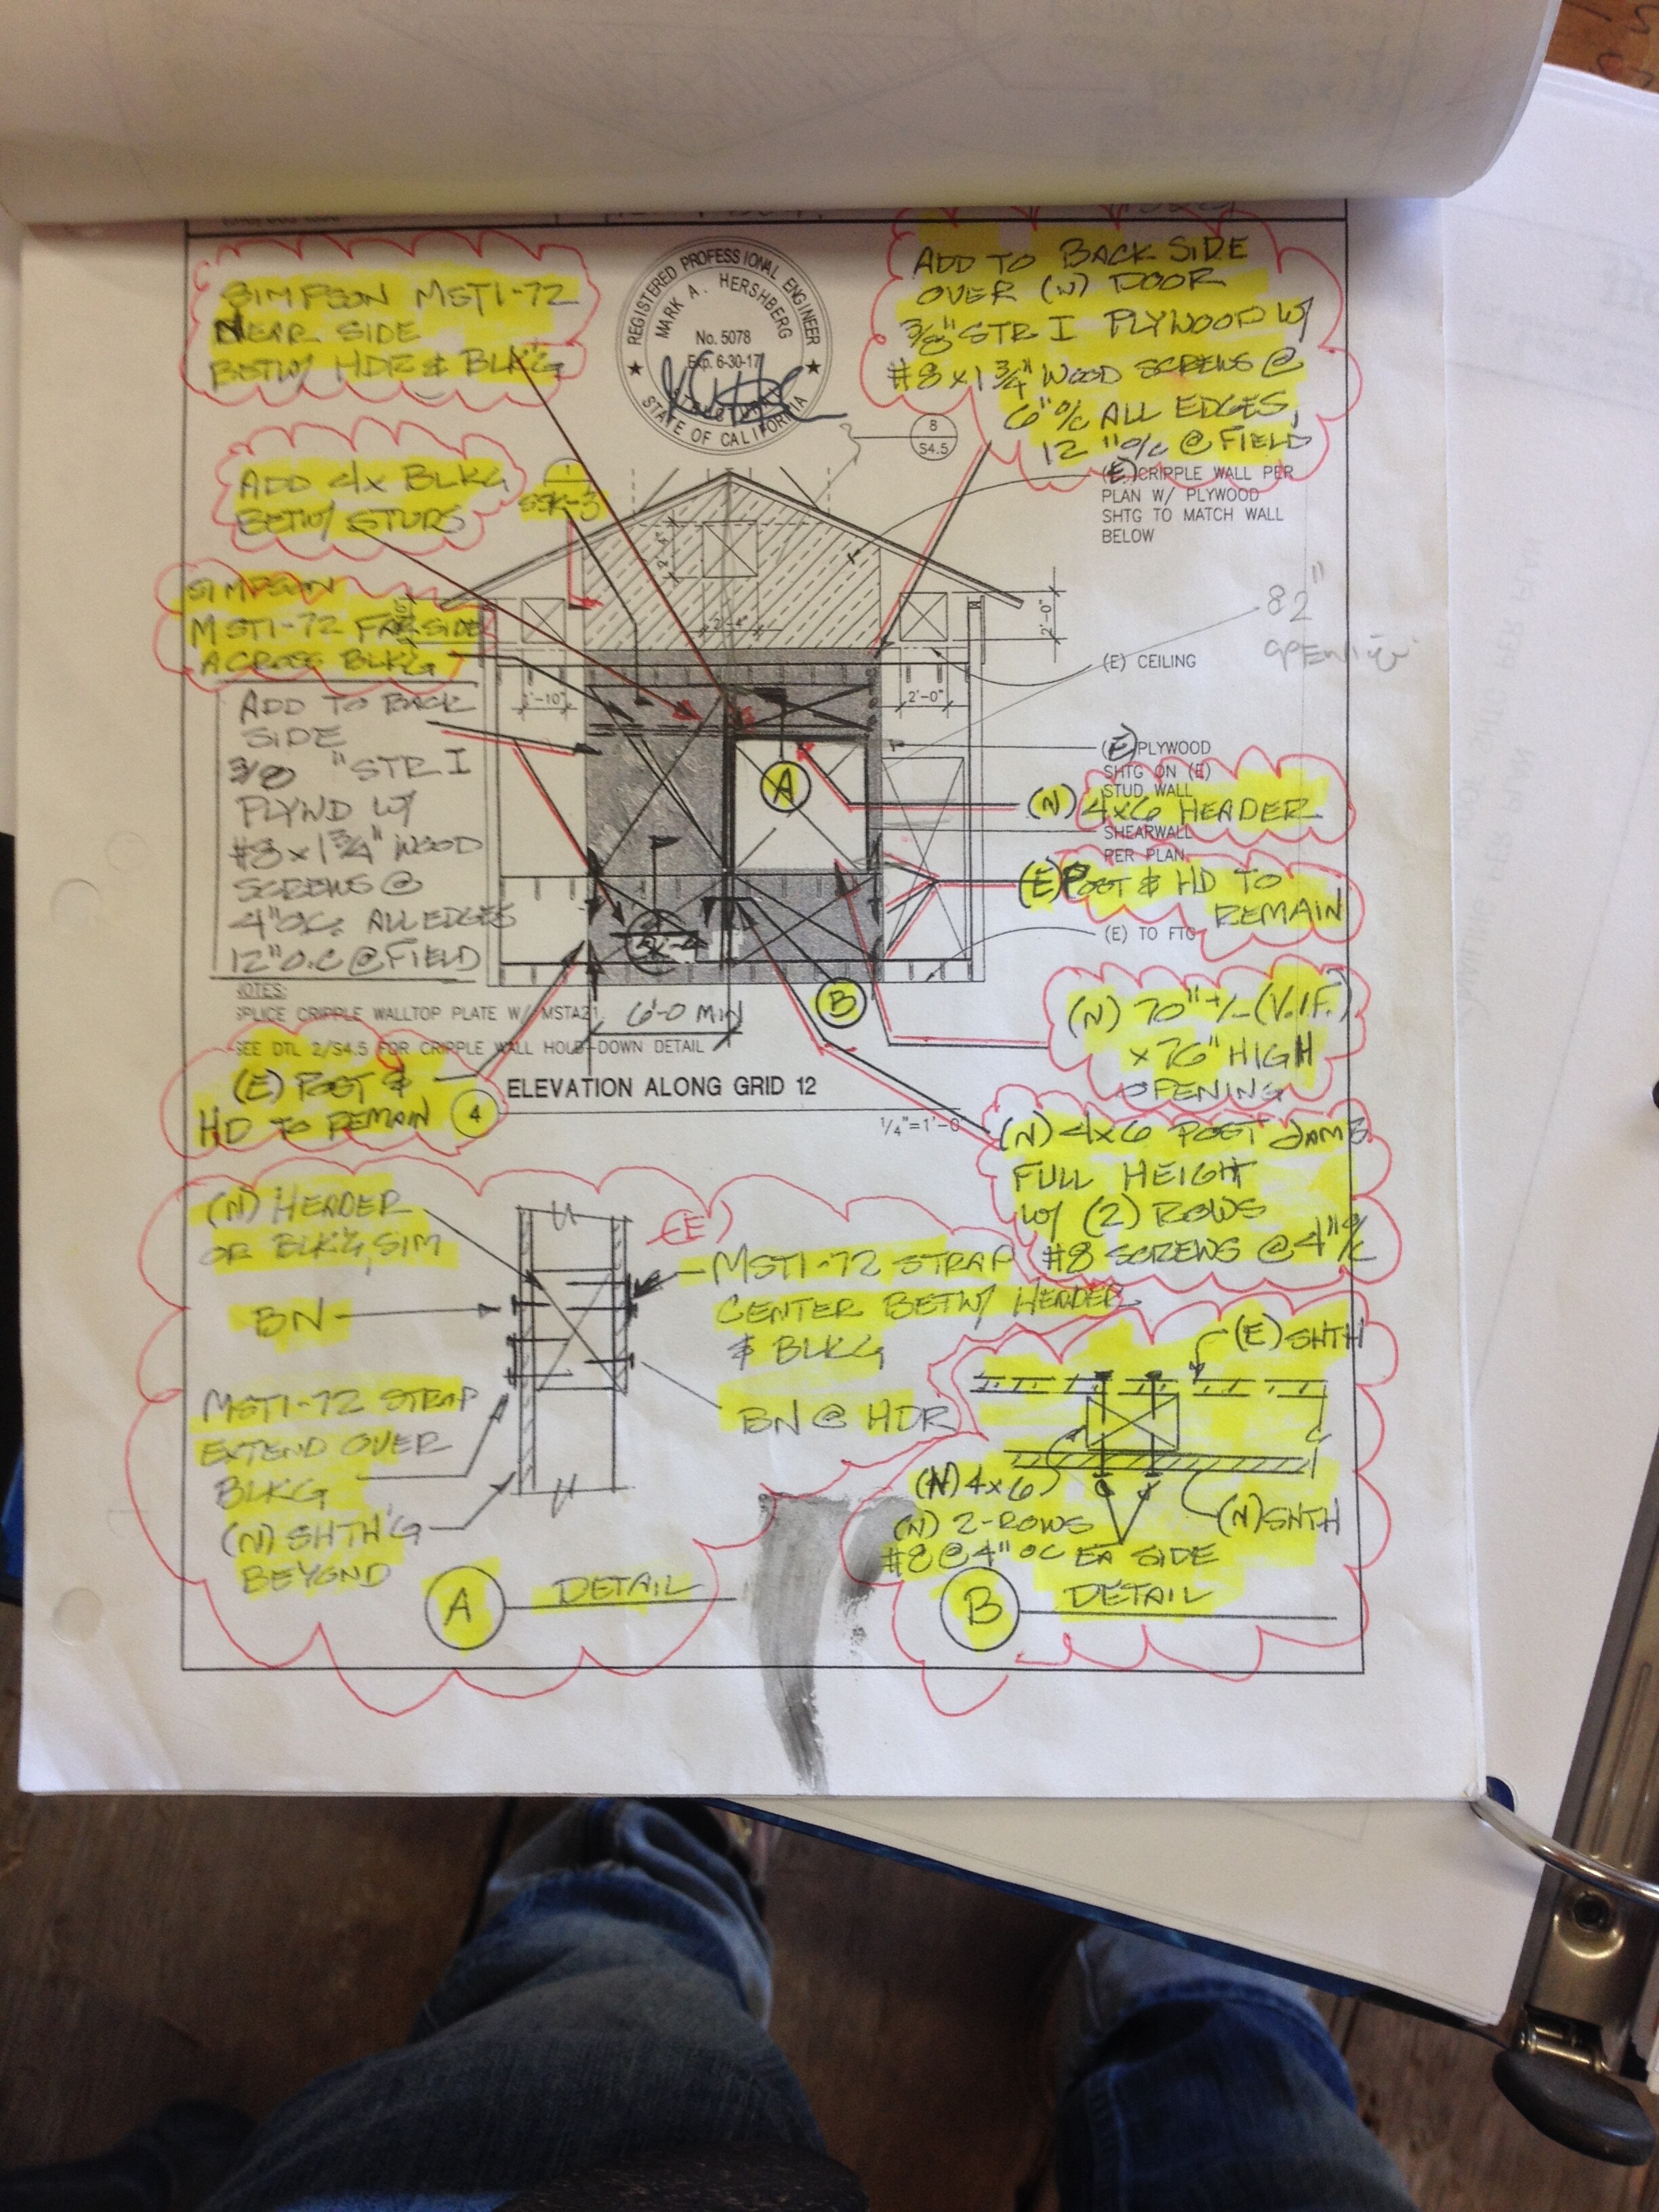 SIMPSON MSTI-72
NEAR SIDE
BETW/ HDR & BLK'G
REGISTERED PROFESSIONAL ENGINEER
MARK A. HERSHBERG
No. 5078
Exp. 6-30-17
STATE OF CALIFORNIA
ADD TO BACK SIDE
OVER (N) DOOR
3/8" STR I PLYWOOD W/
#8 x 1 3/4" WOOD SCREWS @
6" o/c ALL EDGES,
12" o/c @ FIELD
8
S4.5
(E) CRIPPLE WALL PER
PLAN W/ PLYWOOD
SHTG TO MATCH WALL
BELOW
ADD 4x BLKG
BETW/ STUDS
1
SSK-3
SIMPSON
MSTI-72 FAR SIDE
ACROSS BLK'G
2'-4"
2'-0"
82"
OPENING
(E) CEILING
1'-10"
2'-0"
ADD TO BACK
SIDE
3/8 "STR I
PLYWD W/
#8 x 1 3/4" WOOD
SCREWS @
4" O.C. ALL EDGES
12" O.C @ FIELD
A
(E) PLYWOOD
SHTG ON (E)
STUD WALL
(N) 4x6 HEADER
SHEARWALL
PER PLAN
(E) POST & HD TO
REMAIN
(E) TO FTG
B
(N) 70" +/- (V.I.F.)
x 76" HIGH
OPENING
NOTES:
SPLICE CRIPPLE WALLTOP PLATE W/ MSTA21
6'-0 MIN
SEE DTL 2/S4.5 FOR CRIPPLE WALL HOLD-DOWN DETAIL
(E) POST &
HD TO REMAIN
4
ELEVATION ALONG GRID 12
1/4"=1'-0"
(N) 4x6 POST JAMB
FULL HEIGHT
W/ (2) ROWS
#8 SCREWS @ 4" o/c
(N) HEADER
OR BLK'G, SIM
(E)
MSTI-72 STRAP
CENTER BETW/ HEADER
& BLKG
BN
BN @ HDR
MSTI-72 STRAP
EXTEND OVER
BLKG
(N) SHTH'G
BEYOND
A DETAIL
(E) SHTH
(N) 4x6
(N) 2-ROWS
#8 @ 4" OC EA SIDE
(N) SHTH
B DETAIL